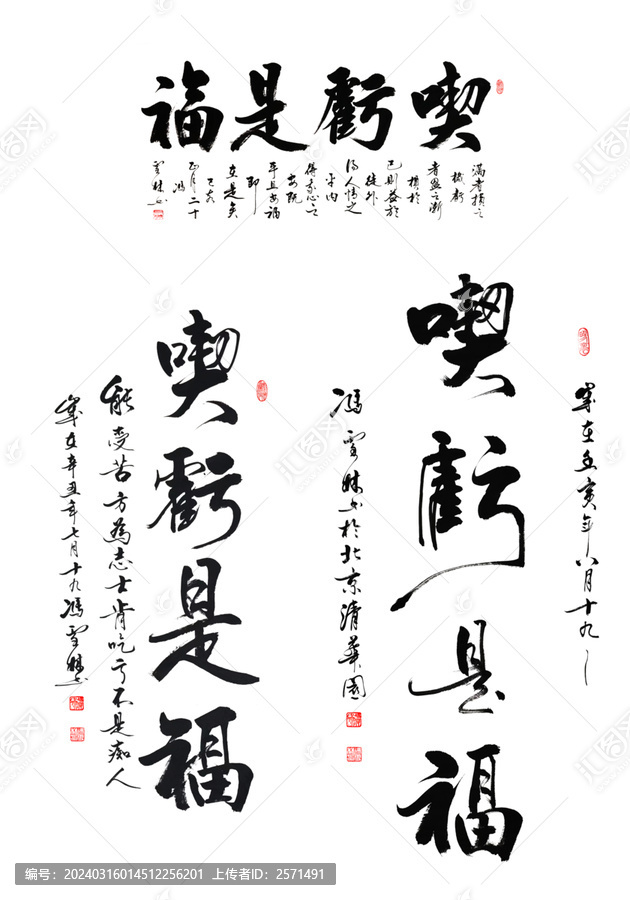 喫虧是福
满者损之
機虧
者盈之漸
損於
己則益於
彼外
得人情之
平内
得我心之
安既
平且安福
即
在是矣
己亥
正月二十
馮
雪林书
喫虧是福
能受苦方為志士肯吃亏不是痴人
歲在辛丑年七月十九馮雪林书
歲在
亥年八月十九
喫虧是福
馮雪林书於北京清華園
编号：20240316014512256201 上传者ID：2571491